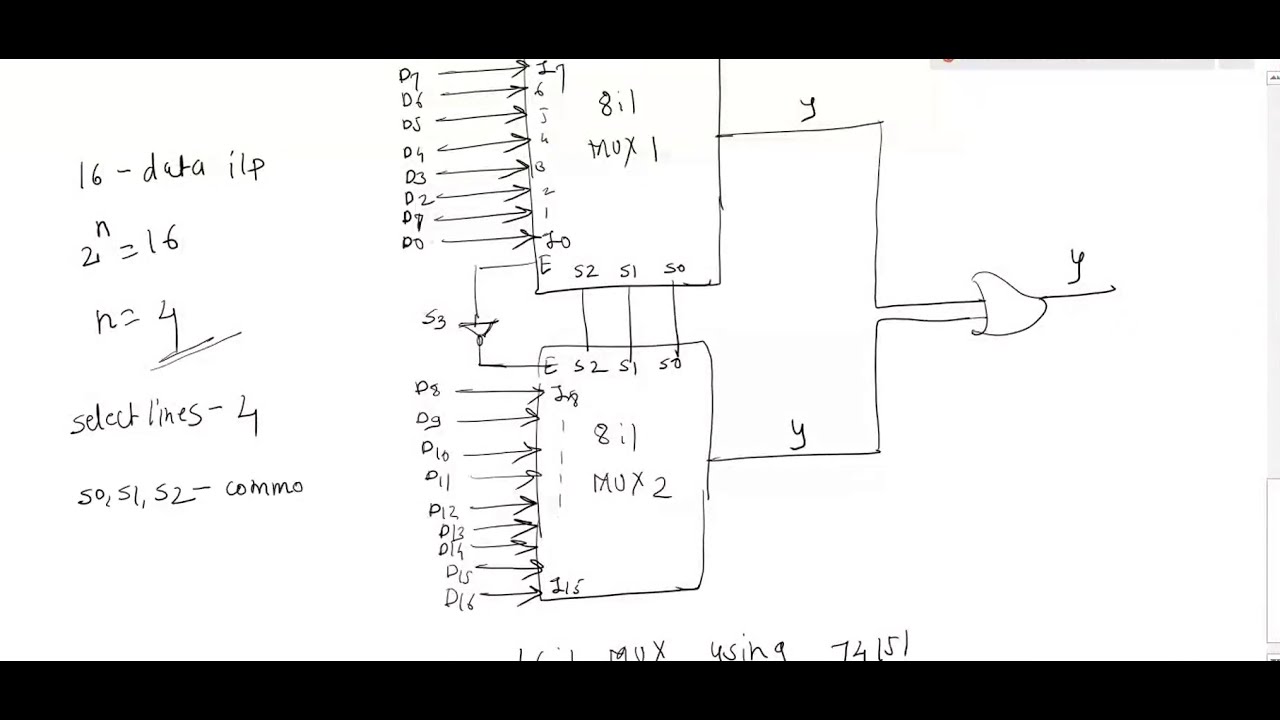 16 - data i/p
2^n = 16
n = 4
select lines - 4
S0, S1, S2 - commo
D7
D6
D5
D4
D3
D2
D1
D0
I7
6
5
4
3
2
1
I0
8:1
MUX 1
E S2 S1 S0
y
S3
E S2 S1 S0
D8
D9
D10
D11
D12
D13
D14
D15
D16
I8
8:1
MUX 2
I15
y
y
16:1 MUX using 74151